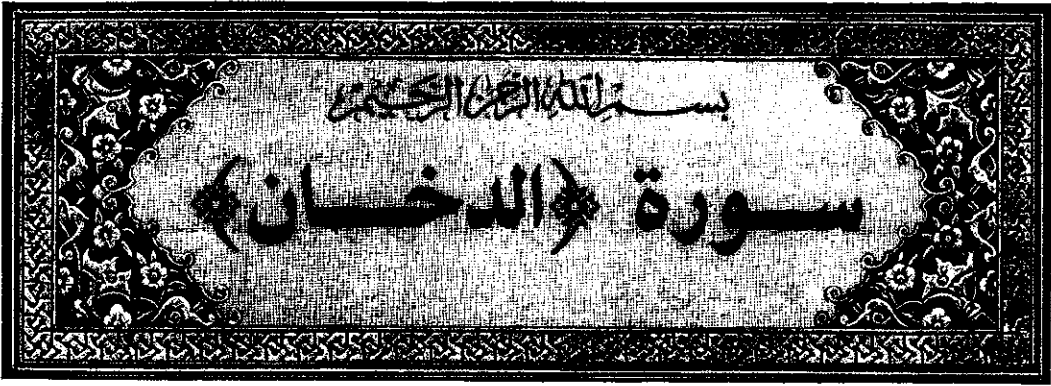 بسم الله الرحمن الرحيم
ســورة ﴿الدخــان﴾